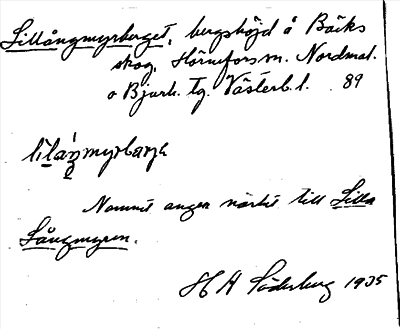 Lillångmyrberget, bergshöjd å Bäcks
skog, Hörnefors sn. Nordmal.
o Bjurh. tg. Västerb. l. 89
lìlaŋmyrbærjə
Namnet anger närhet till Lilla
Långmyren.
H A Söderberg 1935